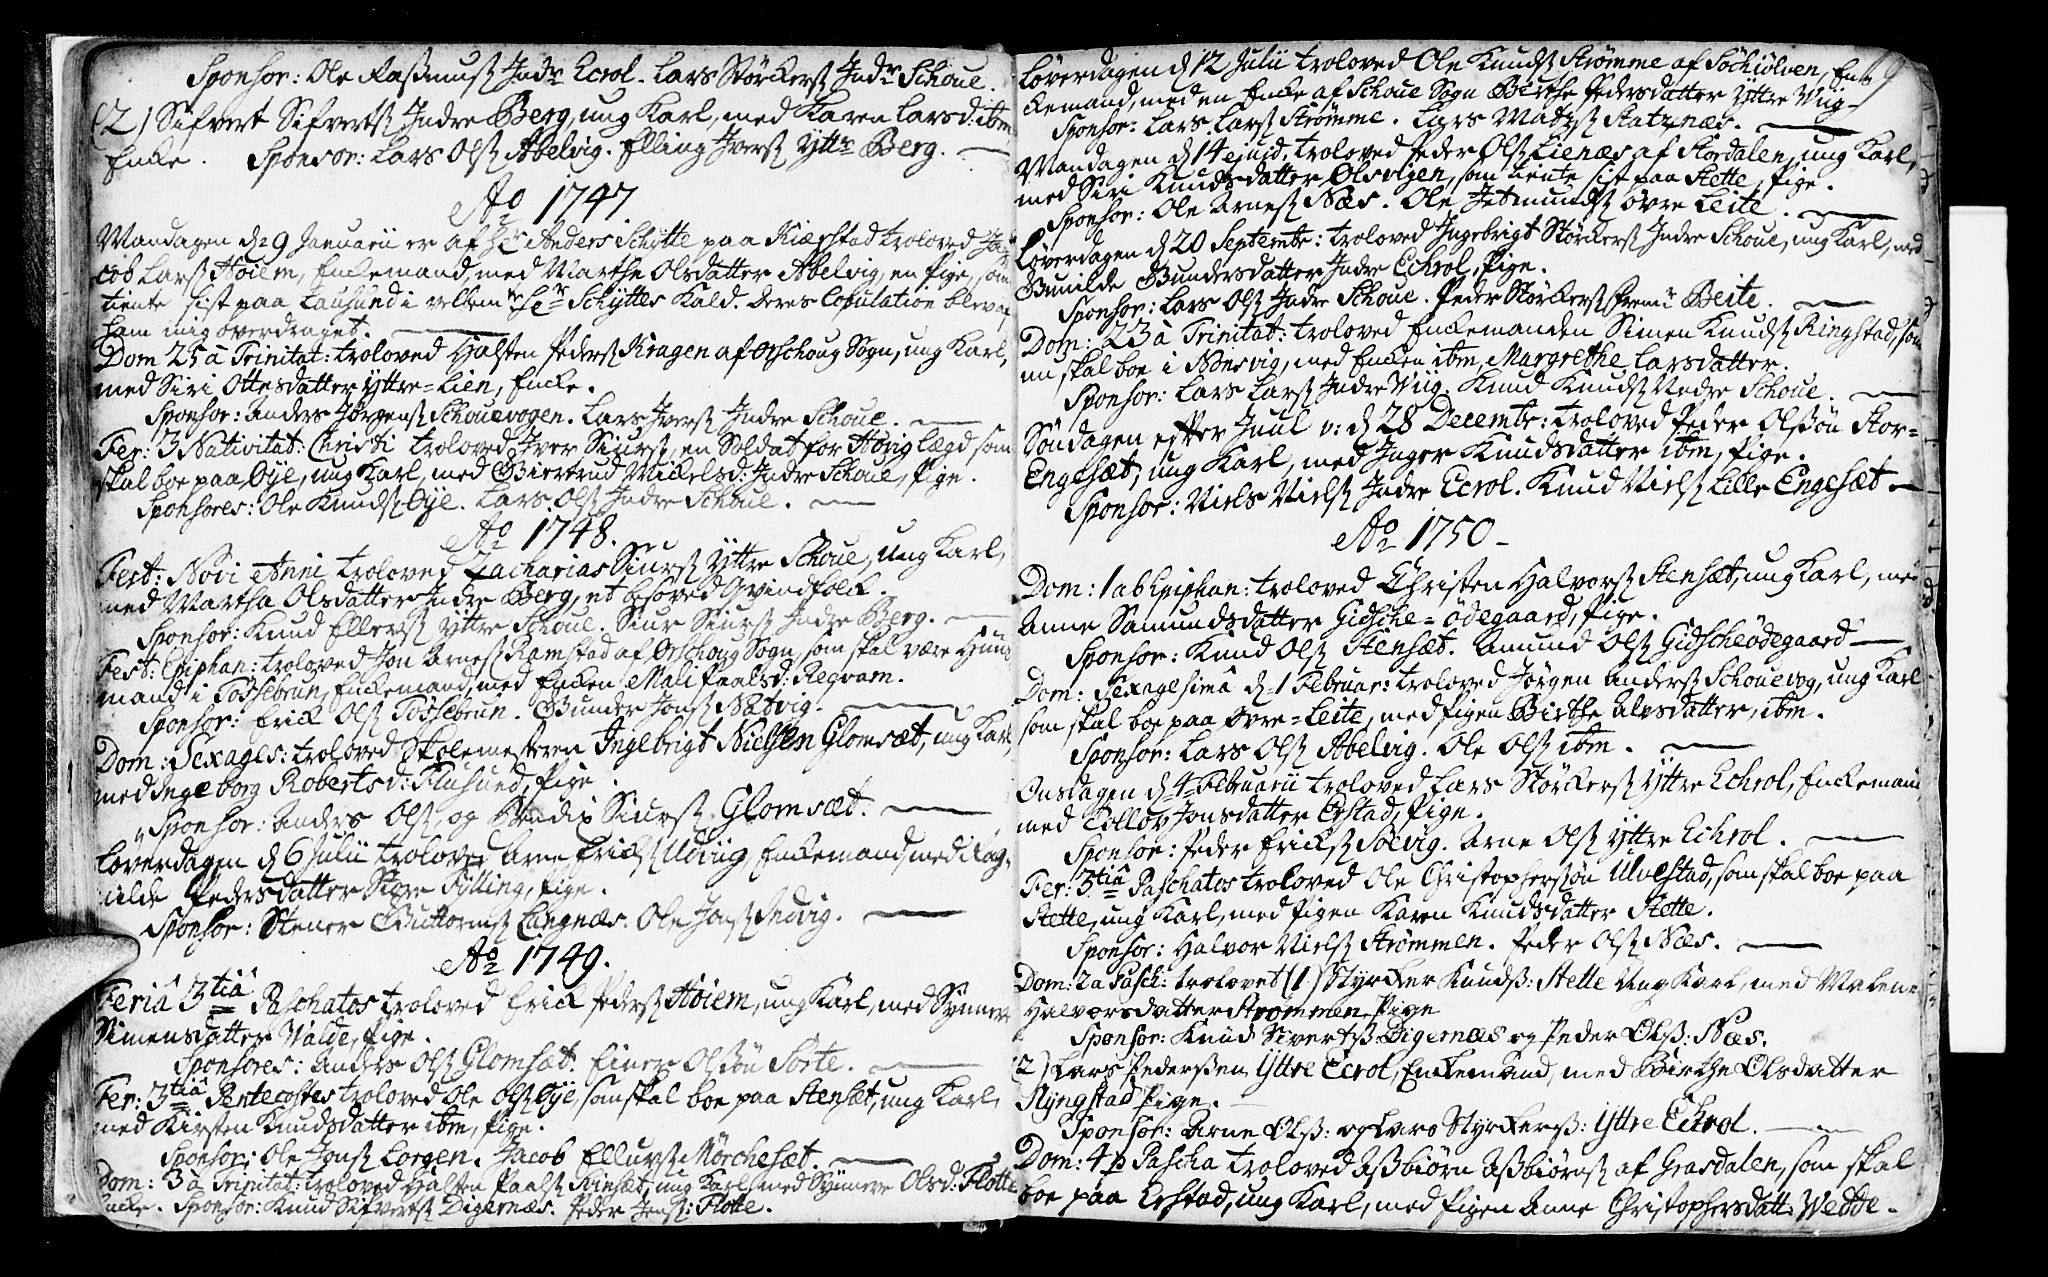 Sponsor: Ole Rasmusß Indr Ecrol. Lars Störckersß Indr Schoue.
(2) Sifvert Sifvertsß Indre Berg, ung Karl, med Karen Larsd: ibm
Encke. Sponsor: Lars Olsß Abelvig. Elling Iversß Yttr Berg.
Ao 1747.
Mandagen d: 9 Januarii er af Hr Anders Schytte paa Kierstad troloved Ja-
cob Larsß Höiem, Enckemand, med Marthe Olsdatter Abelvig, en Pige, som
tiente sist paa Lausund i velbemte Hr Schyttes Kald. deres Copulation blev af
ham mig overdraget.
Dom 25 à Trinitat: troloved Halsten Pedersß Kragen af Orschoug Sogn, ung Karl,
med Siri Ottesdatter Yttre-Lien, Encke.
Sponsor: Anders Jörgensß Schouevogen. Lars Iversß Indre Schoue.
Fer: 3 Nativitat: Christi troloved Iver Siursß, en Soldat for Hovig lægd som
skal boe paa Öye, ung Karl, med Giertrud Mickelsd: Indre Schoue, Pige.
Sponsores: Ole Knudsß Öye. Lars Olsß Indre Schoue.
Ao 1748.
Fest: Novi Anni troloved Zacharias Siursß Yttre Schoue, ung Karl,
med Martha Olsdatter Indre Berg, et besoved Qvindfolk.
Sponsor: Knud Ellersß Yttre Schoue. Siur Siursß Indre Berg.
Fest: Epiphan: troloved Jon Arnesß Ramstad af Orschoug Sogn, som skal være Huus
mand i Tossebrun, Enckemand, med Encken Mali Paalsd: Regvam.
Sponsor: Erick Olsß Tossebrun. Gunder Jonsß Nætvig.
Dom: Sexages: troloved Skolemesteren Ingebrigt Nielssen Glomsæt, ung Karl
med Ingeborg Robertsd: Flusund, Pige.
Sponsor: Anders Olsß og Bendix Siursß Glomsæt.
Löverdagen d 6 Julii troloved Arne Ericksß Udviig, Enckemand, med Rag-
nilde Pedersdatter Store Fylling, Pige.
Sponsor: Stener Guttormsß Langnæs. Ole Jonsß Indvig.
Ao 1749.
Feriâ 3tiâ Paschatos troloved Erick Pedersß Höiem, ung Karl, med Synneve
Simensdatter Valde, Pige.
Sponsores: Anders Olsß Glomsæt. Einer Olssön Sorte.
Fer: 3tiâ Pentecostes troloved Ole Olsß Öye, som skal boe paa Stensæt, ung Karl,
med Kirsten Knudsdatter ibm, Pige.
Sponsor: Ole Jonsß Lorgen. Jacob Ellingsß Mörchesæt.
Dom: 3 à Trinitat: troloved Halsten Paalsß Svinsæt, ung Karl, med Synneve Olsd: Flotte
Encke. Sponsor: Knud Sifvertsß Digernæs. Peder Jensß: Flotte.
Löverdagen d 12 Julii troloved Ole Knudsß Strømme af Söchiölven, En-
ckemand, med en Encke af Schoue Sogn Birthe Pedersdatter Yttre Viig-
Sponsor: Lars Larsß Strømme. Lars Madsß Statznæs.
Mandagen d 14 ejusd: troloved Peder Olsß Lienæs af Stordalen, ung Karl,
med Siri Knudsdatter Ölsvigen, som tiente sist paa Stette, Pige.
Sponsor: Ole Arnesß Næs. Ole Jetmundsß övre Leite.
Löverdagen d 20 Septembr: troloved Ingebrigt Störckersß Indre Schoue, ung Karl, med
Gunilde Gundersdatter Indre Echrol, Pige.
Sponsor: Lars Olsß Indre Schoue. Peder Störckersß Fremr Beite.
Dom: 23 à Trinitat: troloved Enckemanden Simen Knudsß Ringstad, som
nu skal boe i Nörvig, med Encken ibm, Margrethe Larsdatter.
Sponsor: Lars Larsß Indre Viig. Knud Knudsß Nedre Schoue.
Söndagen efter Juul v: d 28 Decembr: troloved Peder Olssön Stor-
Engesæt, ung Karl, med Inger Knudsdatter ibm, Pige.
Sponsor: Niels Nielsß Indre Ecrol. Knud Nielsß Lille Engesæt
Ao 1750
Dom: 1 ab Epiphan: troloved Christen Halvorsß Stensæt, ung Karl, med
Anne Samundsdatter Gidsche-ödegaard, Pige.
Sponsor: Knud Olsß Stensæt. Amund Olsß Gidscheödegaard
Dom: Sexagesimâ d 1 Februar: troloved Jörgen Andersß Schouevog, ung Karl
som skal boe paa övre-Leite, med Pigen Birthe Alvsdatter, ibm.
Sponsor: Lars Olsß Abelvig. Ole Olsß ibm.
Onsdagen d 4 Februarii troloved Lars Störckersß Yttre Echrol, Enckemand
med Tollov Jonsdatter Erstad, Pige.
Sponsor: Peder Ericksß Solvig. Arne Olsß Yttre Echrol.
Fer: 3tiâ Paschatos troloved Ole Christopherssön Ulvestad, som skal boe paa
Stette, ung Karl, med Pigen Karen Knudsdatter Stette.
Sponsor: Halvor Nielsß Strömmen. Peder Olsß Næs.
Dom: 2 a Pasch: trolovet (1) Styrcker Knudsß: Stette Ung Karl, med Malene
Halvorsdatter Strömmen Pige
Sponsor: Knud Sivertsß Digernæs og Peder Olsß: Næs.
(2) Lars Pederssen Yttre Ecrol, Enckemand, med Birthe Olsdatter
Ryngstad Pige.
Sponsor: Arne Olsß: og Lars Styrckersß: Yttre Echrol.
Dom: 4 p Pascha troloved Asbiörn Asbiörnsß af Grasdalen, som skal
boe paa Erstad, ung Karl, med Pigen Anne Christophersdatt: Wedde.